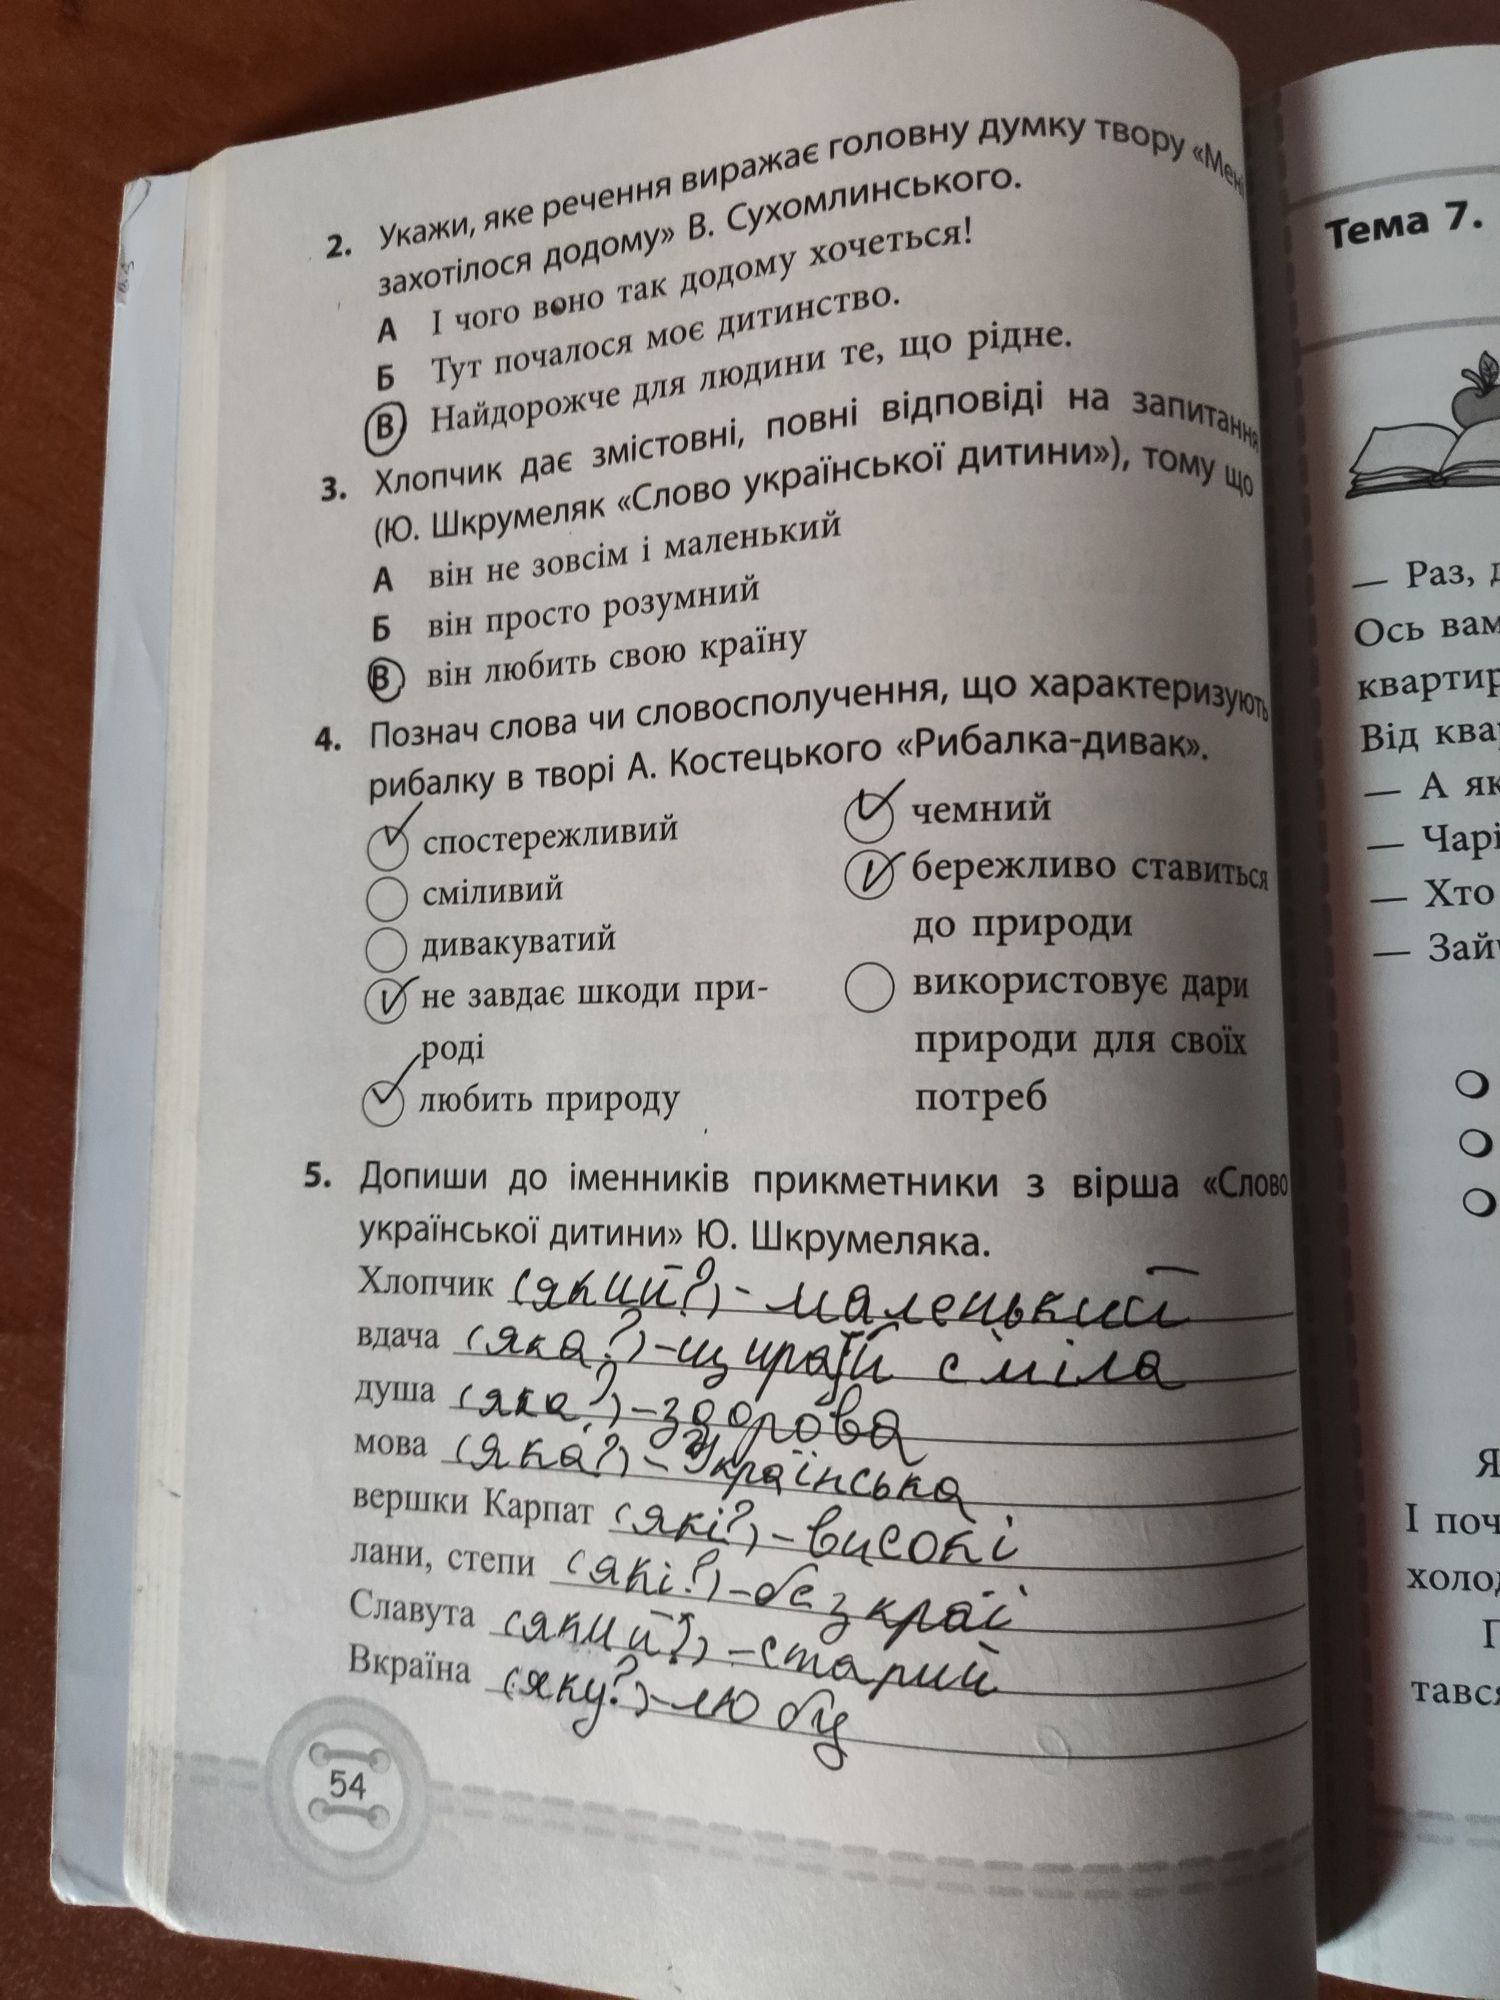 2. Укажи, яке речення виражає головну думку твору «Мені
захотілося додому» В. Сухомлинського.
А І чого воно так додому хочеться!
Б Тут почалося моє дитинство.
В Найдорожче для людини те, що рідне.
3. Хлопчик дає змістовні, повні відповіді на запитання
(Ю. Шкрумеляк «Слово української дитини»), тому що
А він не зовсім і маленький
Б він просто розумний
В він любить свою країну
4. Познач слова чи словосполучення, що характеризують
рибалку в творі А. Костецького «Рибалка-дивак».
спостережливий
сміливий
дивакуватий
не завдає шкоди при-
роді
любить природу
чемний
бережливо ставиться
до природи
використовує дари
природи для своїх
потреб
5. Допиши до іменників прикметники з вірша «Слово
української дитини» Ю. Шкрумеляка.
Хлопчик (який?) - маленький
вдача (яка?) - сміла
душа (яка?) - здорова
мова (яка?) - Українська
вершки Карпат (які?) - високі
лани, степи (які?) - безкраї
Славута (який?) - старий
Вкраїна (яку?) - любу
54
Тема 7.
— Раз,
Ось вам
Від
— А як
—
— Хто
—
Я
І